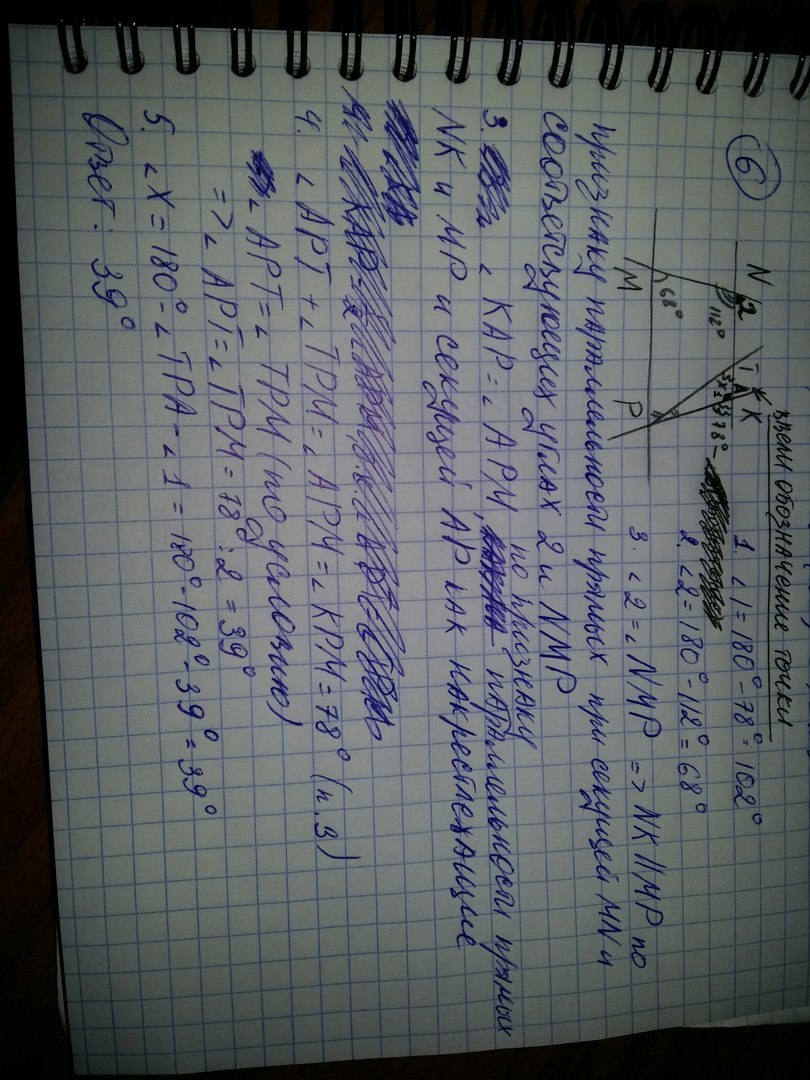 6
ввели обозначение точки
N 2 T K
112° A 78°
68°
M P
1. ∠1 = 180° - 78° = 102°
2. ∠2 = 180° - 112° = 68°
3. ∠2 = ∠NMP => NK || MP по
признаку параллельности прямых при секущей MN и
соответсвующих углах 2 и NMP
3. ∠KAP = ∠APM, по признаку параллельности прямых
NK и MP и секущей AP как накрестлежащие
4. ∠APT + ∠TPM = ∠APM = ∠KPM = 78° (п.3)
∠APT = ∠TPM (по условию)
=> ∠APT = ∠TPM = 78° : 2 = 39°
5. ∠X = 180° - ∠TPA - ∠1 = 180° - 102° - 39° = 39°
Ответ: 39°